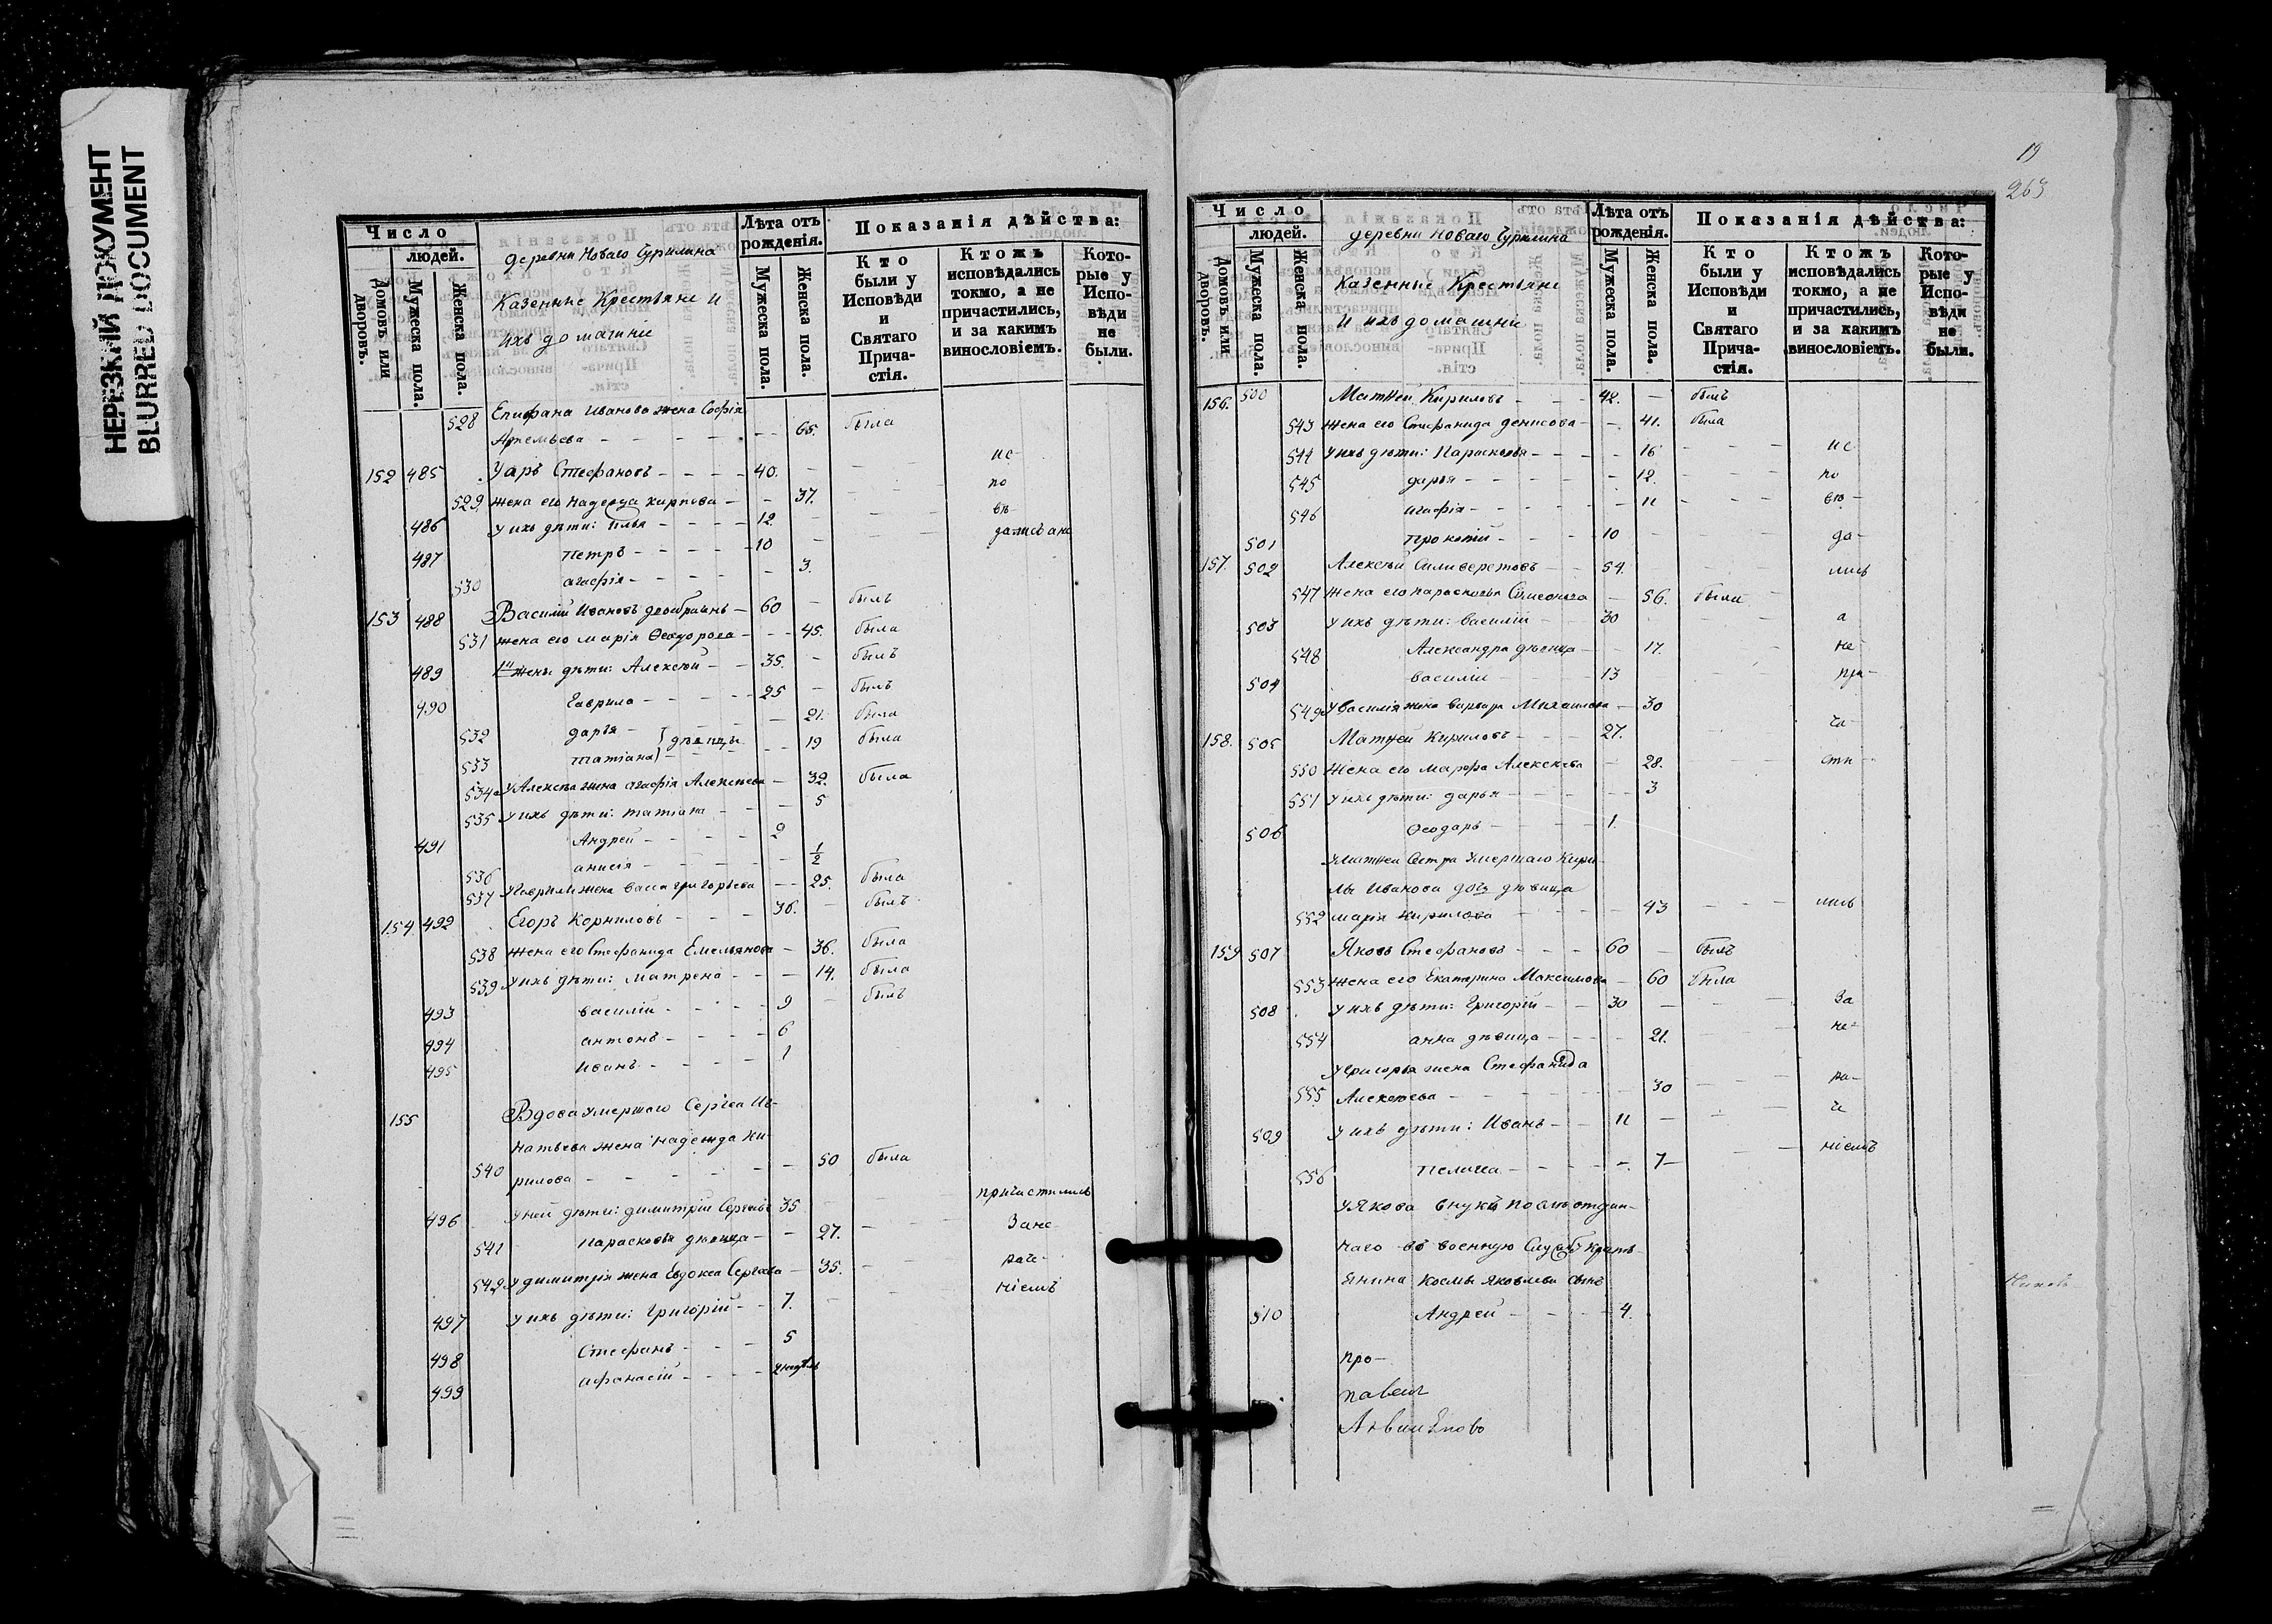 НЕРЕЗКИЙ ДОКУМЕНТ
BLURRED DOCUMENT
Число
людей.
Домовъ или дворовъ.
Мужеска пола.
Женска пола.
деревни Новаго Чурилина
Казенные Крестьяне и
ихъ домашние
Лѣта отъ рожденія.
Мужеска пола.
Женска пола.
Показанія дѣйства:
Кто были у Исповѣди и Святаго Причастія.
Ктожъ исповѣдались токмо, а не причастились, и за какимъ винословіемъ.
Которые у Исповѣди не были.
528 Епифана Иванова жена Софія
Артемьева - - - - 65. была
152 485 Уаръ Стефановъ - - - - 40. - ис-
529 жена его Надежда Карпова - - 37. - по
486 у ихъ дѣти: Илья - - - - 12. - вѣ-
487 Петръ - - - - 10 - дались а не
530 агафія - - - - 3.
153 488 Василій Ивановъ - 60 - былъ
531 жена его Марія Ѳеодорова - - - 45. была
489 1й жены дѣти: Алексѣй - - 35. - былъ
490 Гаврила - - - - 25 - былъ
532 дарья - - 21. была
533 татіана } дѣвицы - - - 19 была
534 у Алексѣя жена агафія Алексѣева - 32. была
535 у ихъ дѣти: татіана - - - 5
491 Андрей - - - - 2
536 анисія - - - - 1/2
537 у Гаврилы жена васса григорьева - - 25. была
154 492 Егоръ Корниловъ - - - 36. - былъ
538 жена его Стефанида Емельянова - 36. была
539 у ихъ дѣти: матрена - - - 14. была
493 василій - - - - 9 - былъ
494 антонъ - - - - 6
495 Иванъ - - - - 1
155 Вдова умершаго Сергея Иг-
натьева жена надежда Ки-
540 рилова - - - - - 50 была
496 у ней дѣти: димитрій Сергеевъ 35 - - причастились
541 Парасковья дѣвица - - 27. - - За не
542 у димитрія жена Евдокса Сергеева - 35. - раче-
497 у ихъ дѣти: Григорій - - 7. - - ніемъ
498 Стефанъ - - - 5
499 афанасій - - - - недѣль
19
263
Число
людей.
Домовъ или дворовъ.
Мужеска пола.
Женска пола.
деревни Новаго Чурилина
Казенные Крестьяне
и ихъ домашни
Лѣта отъ рожденія.
Мужеска пола.
Женска пола.
Показанія дѣйства:
Кто были у Исповѣди и Святаго Причастія.
Ктожъ исповѣдались токмо, а не причастились, и за какимъ винословіемъ.
Которые у Исповѣди не были.
156. 500 Матѳей Кириловъ - - - 42. - былъ
543 жена его Стефанида денисова - - 41. была
544 у ихъ дѣти: Параскевья - - - 16 - - - ис
545 дарья - - - - - 12. - по
546 агафія - - - - - 11 - - - вѣ-
501 Прокопій - - - - 10 - - - да-
157. 502 Алексѣй Силиверстовъ - - 54. лись
547 жена его параскевья Симеонова - 56. была
503 у ихъ дѣти: василій - - 30 а
548 Александра дѣвица - - 17. не-
504 василій - - - - 13 при-
549 у Василія жена варвара Михайлова - 30
158. 505 Матѳей Кириловъ - - - 27. ча-
550 жена его марфа Алексѣева - 28. сти
551 у ихъ дѣти: дарья - - - - 3
506 Ѳеодоръ - - - - 1.
у матѳея сестра умершаго Кири-
лы Иванова дочь дѣвица
552 марія кирилова - - - - 43 - - - лись
159 507 Яковъ Стефановъ - - - 60 - былъ
553 жена его Екатерина Максимова - 60 была
508 у ихъ дѣти: Григорій - - 30 - - - За
554 анна дѣвица - - - 21. - - не-
у григорья жена Стефанида
555 Алексѣева - - - - 30 - - ра-
509 у ихъ дѣти: Иванъ - - 11 - - - че
556 Пелагея - - - - 7 - - ніемъ
у Якова внукъ поелъ отдан-
наго въ военную службу кресть-
янина Космы Яковлева сынъ
510 Андрей - - - - 4.
про-
павелъ